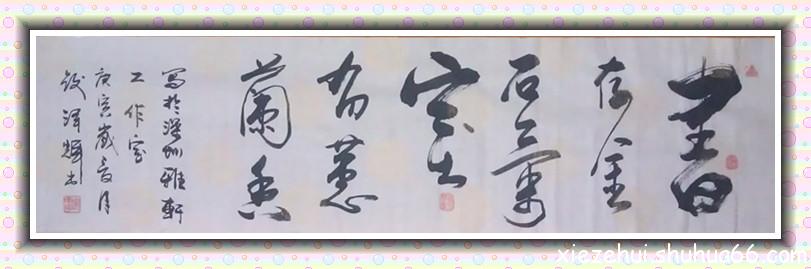 書
存金
石氣
室
有蕙
蘭香
寫於深圳雅軒
工作室
庚寅歲月
謝澤輝書
xiezehui.shuhua66.com